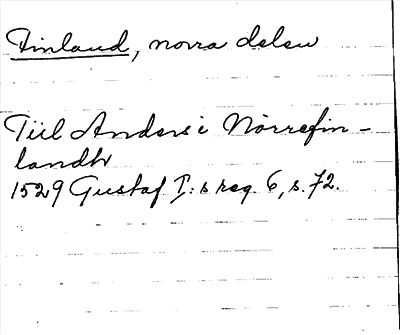 Finland, norra delen
Tiil Anders i Nørrefin-
landh
1529 Gustaf I:s reg. 6, s. 72.